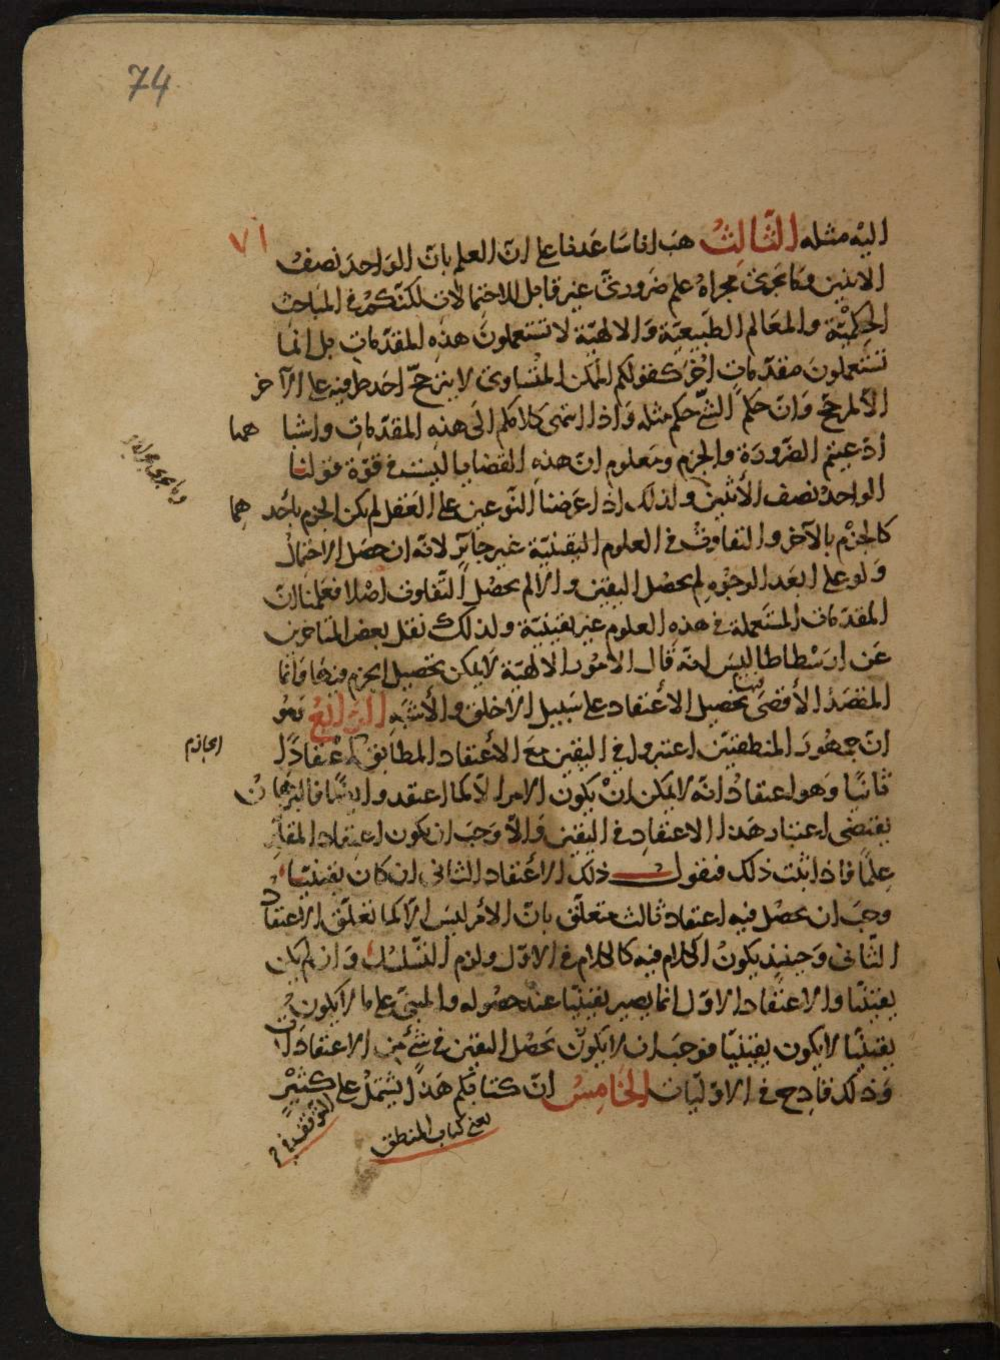 74
٧١
اليه مثله الثالث هب انا ساعدنا على ان العلم بان الواحد نصف
الاثنين وما يجرى مجراه علم ضرورى غير قابل للاحتمالات لكنكم فى المباحث
الحكميّة والمعالم الطبيعيّة والالهيّة لا تستعملون هذه المقدمات بل انما
تستعملون مقدمات اخر كقولكم الممكن المتساوى لا يترجح احد طرفيه على الآخر
الا لمرجح وان حكم الشئ حكم مثله واذا انتهى كلامكم الى هذه المقدمات واشباهها
ادعيتم الضرورة والجزم ومعلوم ان هذه القضايا ليست فى قوة قولنا
الواحد نصف الاثنين ولذلك اذا عرضنا النوعين على العقل لم يكن الجزم باحدهما
كالجزم بالآخر والتفاوت فى العلوم اليقينيّة غير جايز لانه ان حصل الاحتمال
ولو على ابعد الوجوه لم يحصل اليقين والا لم يحصل التفاوت اصلا فعلمنا ان
المقدمات المستعملة فى هذه العلوم غير يقينيّة ولذلك نقل بعض المتاخرين
عن ارسطاطاليس انه قال الامور الالهيّة لا يمكن تحصيل الجزم فيها وانما
المقصد الأقصى فيها تحصيل الاعتقاد على سبيل الاخلق والأشبه الرابع هو
ان جمهور المنطقيين اعتبروا فى اليقين مع الاعتقاد المطابق اعتقادًا
الجازم
ثانيًا وهو اعتقاد انه لا يمكن ان يكون الامر الا كما اعتقد وايضًا فالبرهان
يقتضى اعتبار هذا الاعتقاد فى اليقين والا وجب ان يكون اعتقاد المقلد
علمًا فاذا ثبت ذلك فنقول ذلك الاعتقاد الثانى ان كان يقينيّا
وجب ان يحصل فيه اعتقاد ثالث متعلق بان الأمر ليس الا كما تعلق الاعتقاد
الثانى وحينئذ يكون الكلام فيه كالكلام فى الاول ولزم التسلسل وان لم يكن
يقينيّا والاعتقاد الاول انما يصير يقينيّا عند حصوله والمبنى على ما لا يكون
يقينيّا لا يكون يقينيّا فوجب ان لا يكون يحصل اليقين فى شئ من الاعتقادات
وذلك قادح فى الاوليات الخامس ان كتابكم هذا يشتمل على كثير
يعنى كتاب المنطق